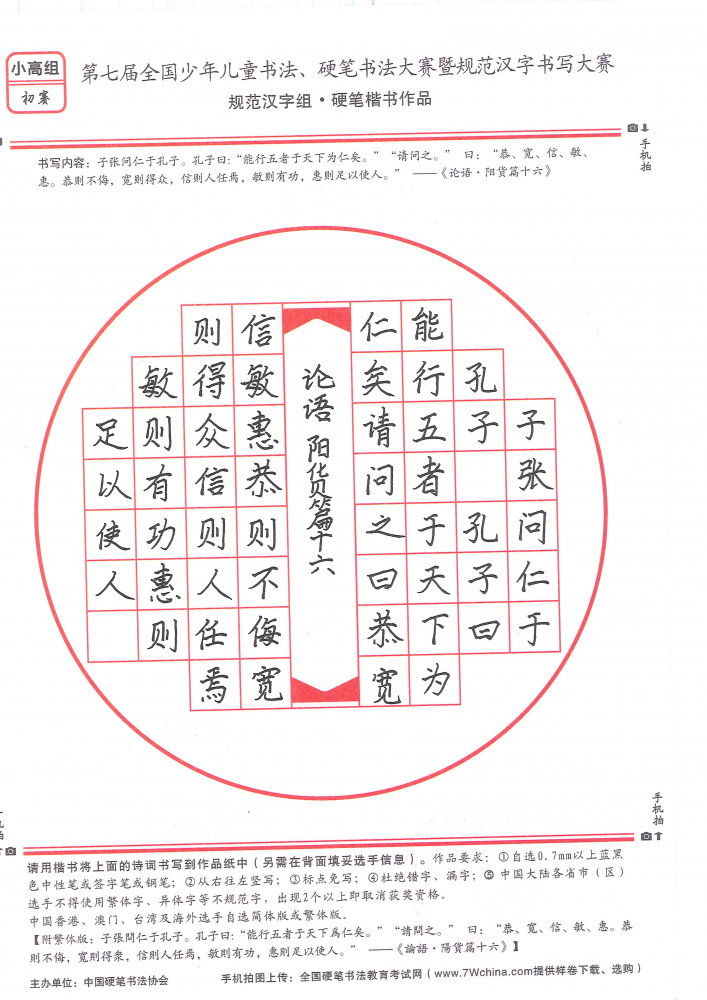 小高组
初赛
第七届全国少年儿童书法、硬笔书法大赛暨规范汉字书写大赛
规范汉字组·硬笔楷书作品
手机拍
书写内容：子张问仁于孔子。孔子曰：“能行五者于天下为仁矣。”“请问之。” 曰：“恭、宽、信、敏、
惠。恭则不侮，宽则得众，信则人任焉，敏则有功，惠则足以使人。” ——《论语·阳货篇十六》
子张问仁于
孔子 孔子曰
能行五者于天下为
仁矣请问之曰恭宽
论语 阳货篇十六
信敏惠恭则不侮宽
则得众信则人任焉
敏则有功惠则
足以使人
手机拍
请用楷书将上面的诗词书写到作品纸中（另需在背面填妥选手信息）。作品要求：①自选0.7mm以上蓝黑
色中性笔或签字笔或钢笔；②从右往左竖写；③标点免写；④杜绝错字、漏字；⑤ 中国大陆各省市（区）
选手不得使用繁体字、异体字等不规范字，出现2个以上即取消获奖资格。
中国香港、澳门、台湾及海外选手自选简体版或繁体版。
【附繁体版：子張問仁于孔子。孔子曰：“能行五者于天下爲仁矣。”“請問之。” 曰：“恭、宽、信、敏、惠。恭
則不侮，宽則得衆，信則人任焉，敏則有功，惠則足以使人。” ——《論語·陽貨篇十六》】
主办单位：中国硬笔书法协会
手机拍图上传：全国硬笔书法教育考试网（www.7Wchina.com提供样卷下载、选购）